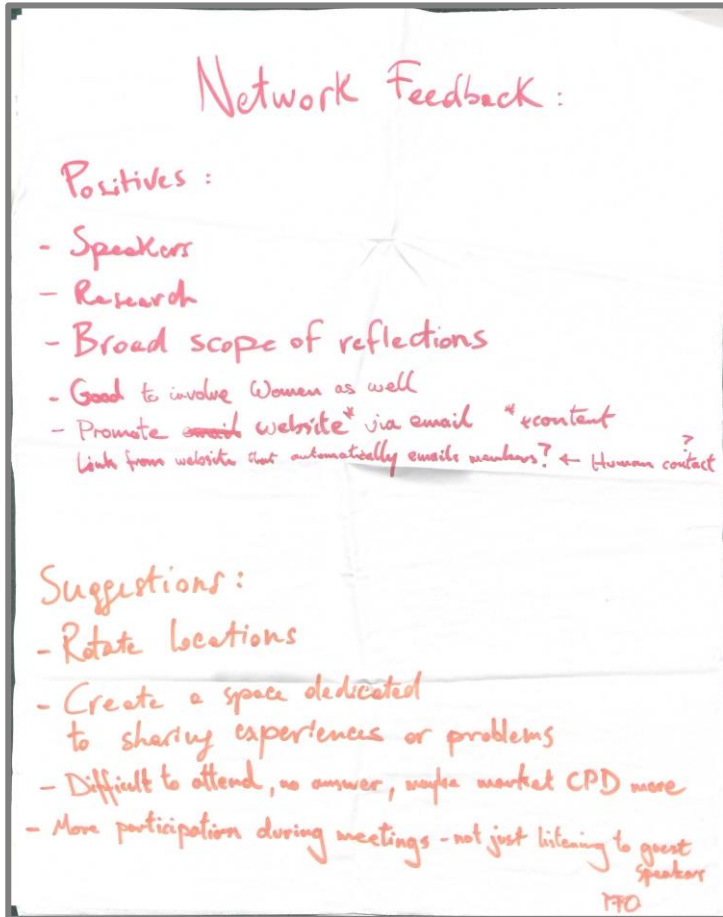 Network Feedback:
Positives:
- Speakers
- Research
- Broad scope of reflections
- Good to involve Women as well
- Promote email website* via email *+content
Link from website that automatically emails members? ← Human contact?
Suggestions:
- Rotate locations
- Create a space dedicated
to sharing experiences or problems
- Difficult to attend, no answer, maybe market CPD more
- More participation during meetings - not just listening to guest
speakers
PTO